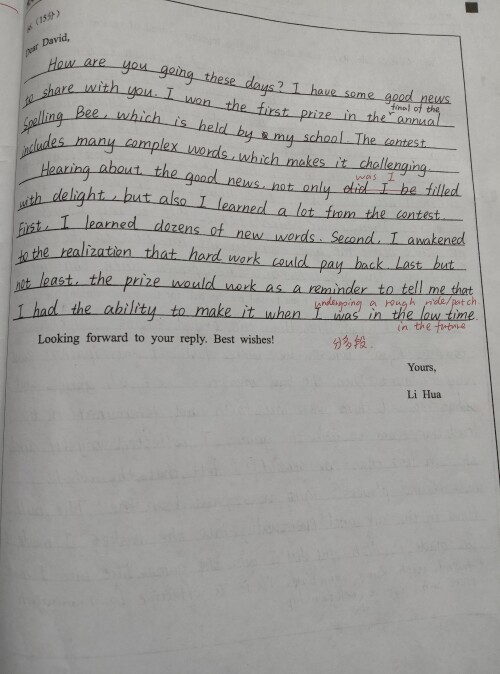 (15分)
Dear David,
How are you going these days? I have some good news
to share with you. I won the first prize in the final of the annual
Spelling Bee, which is held by my school. The contest
includes many complex words, which makes it challenging.
Hearing about the good news, not only did I be was I filled
with delight, but also I learned a lot from the contest.
First, I learned dozens of new words. Second, I awakened
to the realization that hard work could pay back. Last but
not least, the prize would work as a reminder to tell me that
I had the ability to make it when I was in the low time.
undergoing a rough ride/patch
in the future
Looking forward to your reply. Best wishes!
分多段.
Yours,
Li Hua